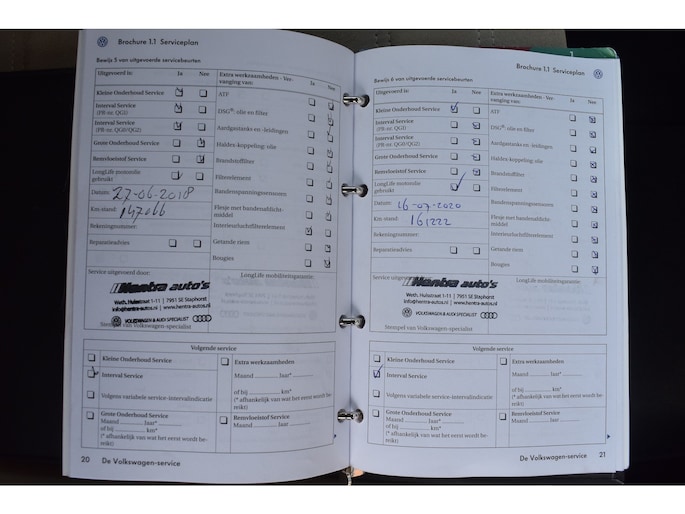 Brochure 1.1 Serviceplan
Bewijs 5 van uitgevoerde servicebeurten
Uitgevoerd is: Ja Nee
Kleine Onderhoud Service
Interval Service
(PR-nr. QG1)
Interval Service
(PR-nr. QG0/QG2)
Grote Onderhoud Service
Remvloeistof Service
LongLife motorolie
gebruikt
Datum:
27-06-2018
Km stand:
147066
Rekeningnummer:
Reparatieadvies
Extra werkzaamheden - Ver-
vanging van: Ja Nee
ATF
DSG®: olie en filter
Aardgastanks en -leidingen
Haldex-koppeling: olie
Brandstoffilter
Filterelement
Bandenspanningssensoren
Flesje met bandenafdicht-
middel
Interieurluchtfilterelement
Getande riem
Bougies
Service uitgevoerd door:
LongLife mobiliteitsgarantie:
Hentra auto's
Weth. Hulststraat 1-11 | 7951 SE Staphorst
info@hentra-autos.nl | www.hentra-autos.nl
VOLKSWAGEN & AUDI SPECIALIST
Stempel van Volkswagen-specialist
Volgende service
Kleine Onderhoud Service
Interval Service
Volgens variabele service-intervalindicatie
Grote Onderhoud Service
Maand ........... Jaar*
of bij ........... km*
(* afhankelijk van wat het eerst wordt be-
reikt)
Extra werkzaamheden
Maand ........... Jaar*
of bij ........... km*
(* afhankelijk van wat het eerst wordt be-
reikt)
Remvloeistof Service
20 De Volkswagen-service
Brochure 1.1 Serviceplan
Bewijs 6 van uitgevoerde servicebeurten
Uitgevoerd is: Ja Nee
Kleine Onderhoud Service
Interval Service
(PR-nr. QG1)
Interval Service
(PR-nr. QG0/QG2)
Grote Onderhoud Service
Remvloeistof Service
LongLife motorolie
gebruikt
Datum:
16-07-2020
Km stand:
161222
Rekeningnummer:
Reparatieadvies
Extra werkzaamheden - Ver-
vanging van: Ja Nee
ATF
DSG®: olie en filter
Aardgastanks en -leidingen
Haldex-koppeling: olie
Brandstoffilter
Filterelement
Bandenspanningssensoren
Flesje met bandenafdicht-
middel
Interieurluchtfilterelement
Getande riem
Bougies
Service uitgevoerd door:
LongLife mobiliteitsgarantie:
Hentra auto's
Weth. Hulststraat 1-11 | 7951 SE Staphorst
info@hentra-autos.nl | www.hentra-autos.nl
VOLKSWAGEN & AUDI SPECIALIST
Stempel van Volkswagen-specialist
Volgende service
Kleine Onderhoud Service
Interval Service
Volgens variabele service-intervalindicatie
Grote Onderhoud Service
Maand ........... Jaar*
of bij ........... km*
(* afhankelijk van wat het eerst wordt be-
reikt)
Extra werkzaamheden
Maand ........... Jaar*
of bij ........... km*
(* afhankelijk van wat het eerst wordt be-
reikt)
Remvloeistof Service
De Volkswagen-service 21